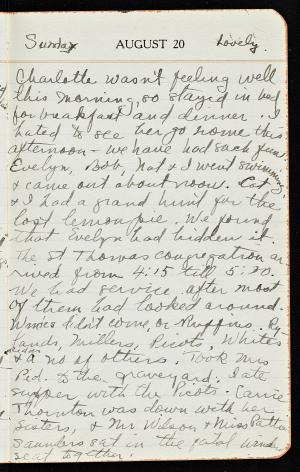 Sunday AUGUST 20 Lovely.
Charlotte wasn't feeling well
this morning, so stayed in bed
for breakfast and dinner. I
hated to see her go home this
afternoon - we have had such fun.
Evelyn, Bob, Nat & I went swimming,
& came out about noon.
& I had a grand hunt for the
lost lemon pie. We found
that Evelyn had hidden it.
The St Thomas congregation ar
rived from 4:15 till 5:20.
We had service after most
of them had looked around.
didn't come, or Ruffins. Ry
lands, Millers, Picots, Whites
& a no of others. Took Mrs
Pid. to the graveyard. I ate
supper with the Picots. Carrie
Thornton was down with her
sisters, & Mr Wilson & Miss Pattie
Saunders sat in the fatal window
seat together.